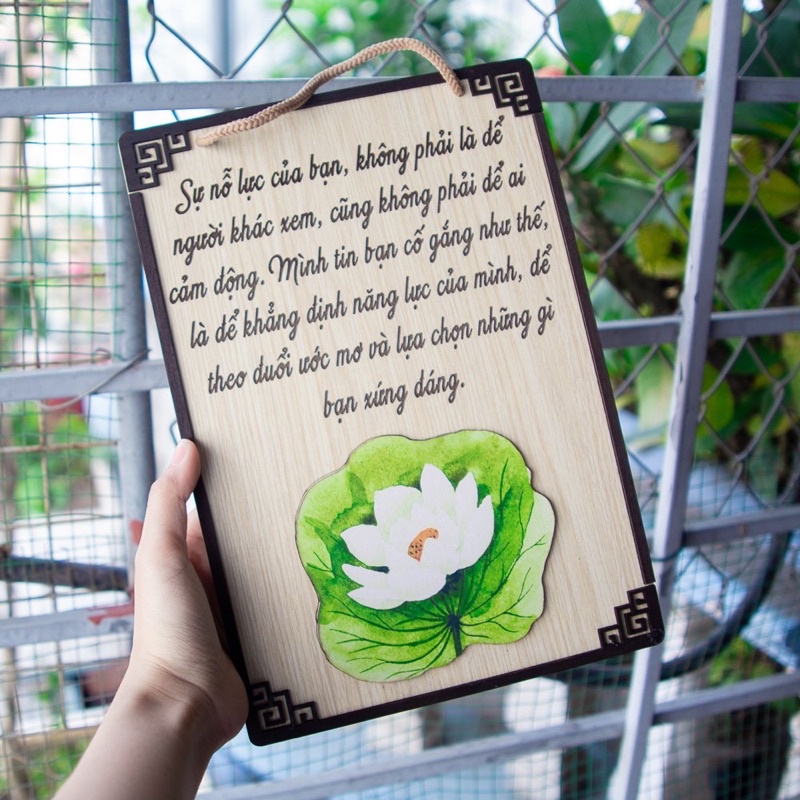 Sự nỗ lực của bạn, không phải là để
người khác xem, cũng không phải để ai
cảm động. Mình tin bạn cố gắng như thế,
là để khẳng định năng lực của mình, để
theo đuổi ước mơ và lựa chọn những gì
bạn xứng đáng.